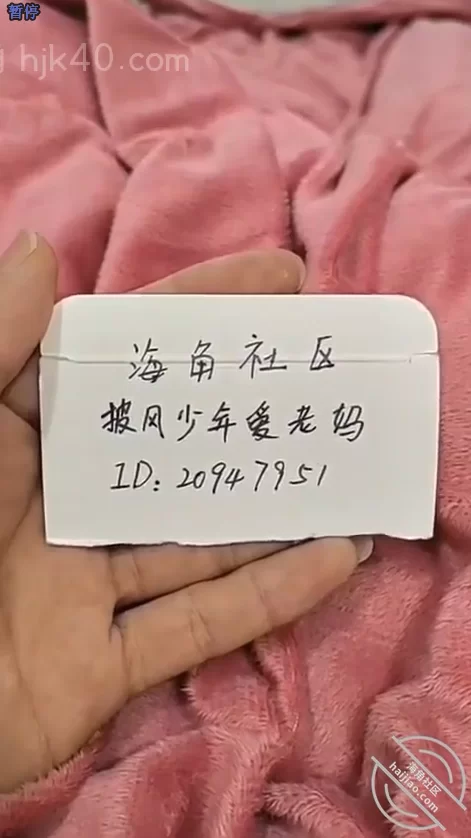 暂停
hjk40.com
海角社区
披风少年爱老妈
ID: 20947951
海角社区
haijiao.com